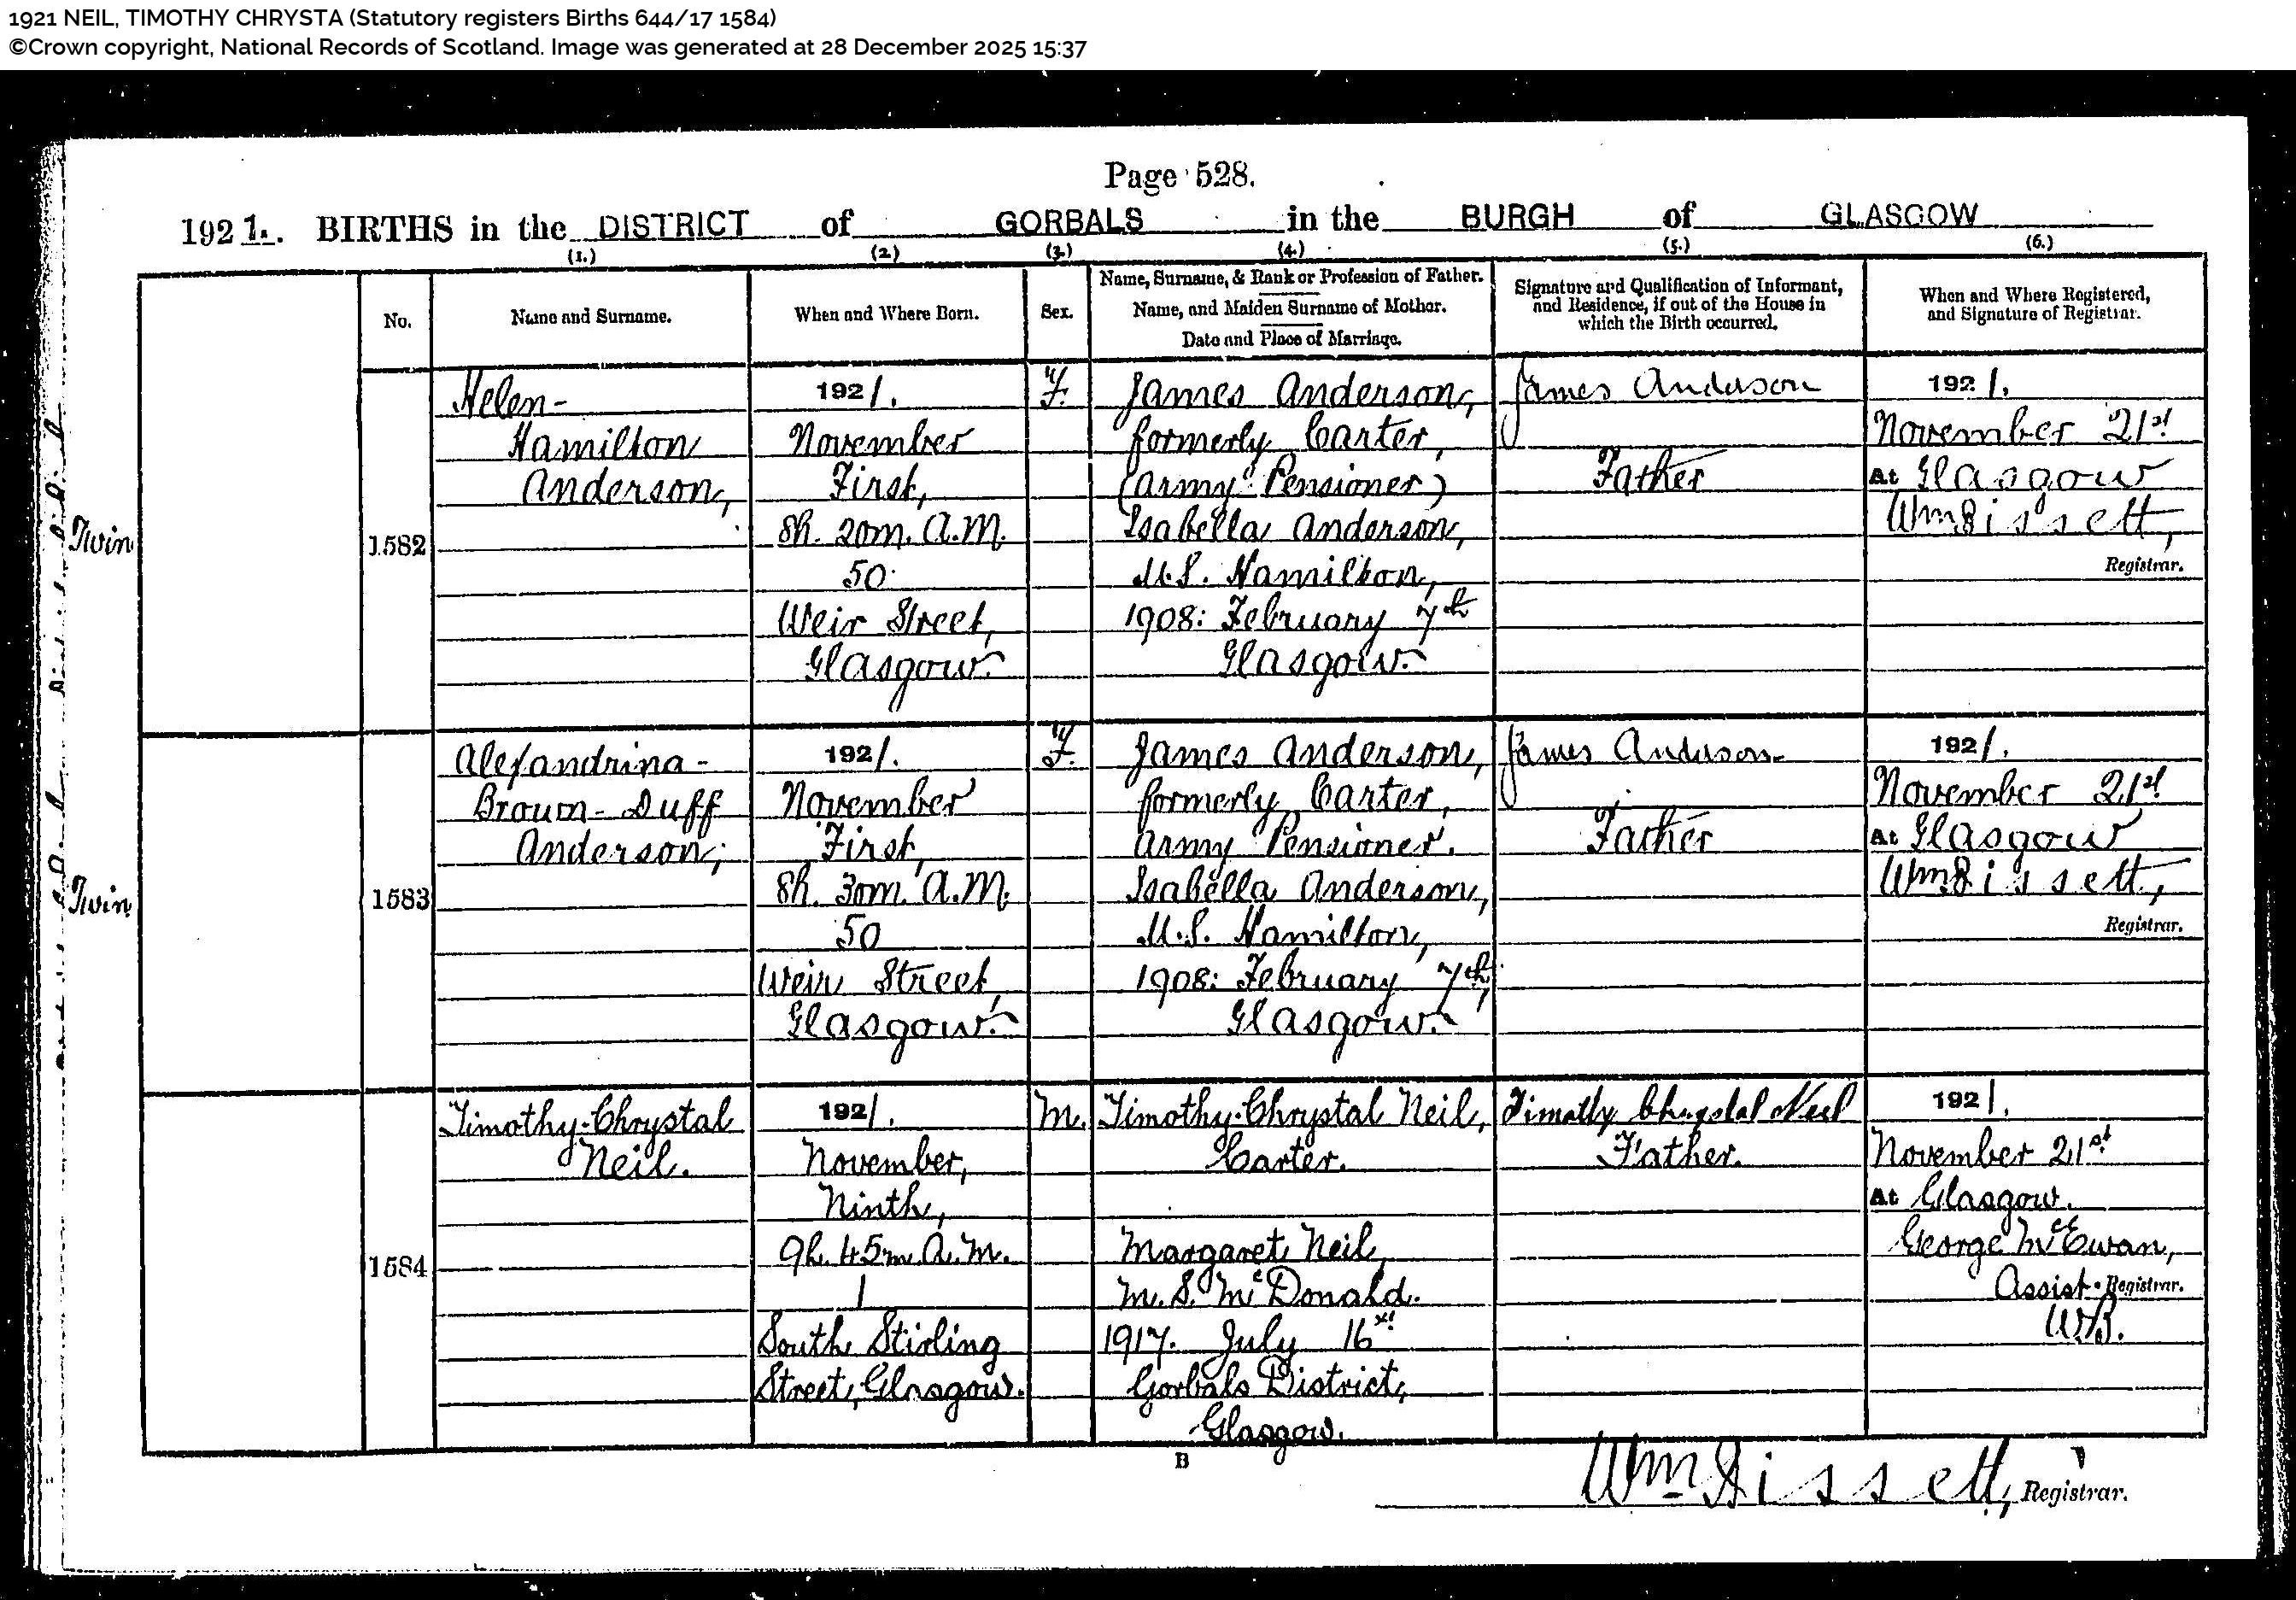 1921 NEIL, TIMOTHY CHRYSTA (Statutory registers Births 644/17 1584)
©Crown copyright, National Records of Scotland. Image was generated at 28 December 2025 15:37
Page 528.
1921. BIRTHS in the DISTRICT of GORBALS in the BURGH of GLASGOW
(1.) (2.) (3.) (4.) (5.) (6.)
No.
Name and Surname.
When and Where Born.
Sex.
Name, Surname, & Rank or Profession of Father.
Name, and Maiden Surname of Mother.
Date and Place of Marriage.
Signature and Qualification of Informant,
and Residence, if out of the House in
which the Birth occurred.
When and Where Registered,
and Signature of Registrar.
Twin
1582
Helen-
Hamilton
Anderson,
1921.
November
First,
8h. 20m. A.M.
50
Weir Street,
Glasgow.
F.
James Anderson,
formerly Carter,
(Army Pensioner)
Isabella Anderson,
M.S. Hamilton,
1908: February 7th
Glasgow.
James Anderson
Father
1921.
November 21st
At Glasgow
Wm Bissett,
Registrar.
Twin
1583
Alexandrina-
Brown-Duff
Anderson,
1921.
November
First,
8h. 30m. A.M.
50
Weir Street,
Glasgow.
F.
James Anderson,
formerly Carter,
Army Pensioner.
Isabella Anderson,
M.S. Hamilton,
1908: February 7th,
Glasgow.
James Anderson
Father
1921.
November 21st
At Glasgow
Wm Bissett,
Registrar.
1584
Timothy-Chrystal
Neil.
1921.
November,
Ninth,
9h. 45m. A.M.
1
South Stirling
Street, Glasgow.
M.
Timothy-Chrystal Neil,
Carter.
Margaret Neil,
M.S. McDonald.
1917. July 16th
Gorbals District,
Glasgow.
Timothy Chrystal Neil
Father.
1921.
November 21st
At Glasgow.
George McEwan,
Assist. Registrar.
W.B.
B
Wm Bissett, Registrar.